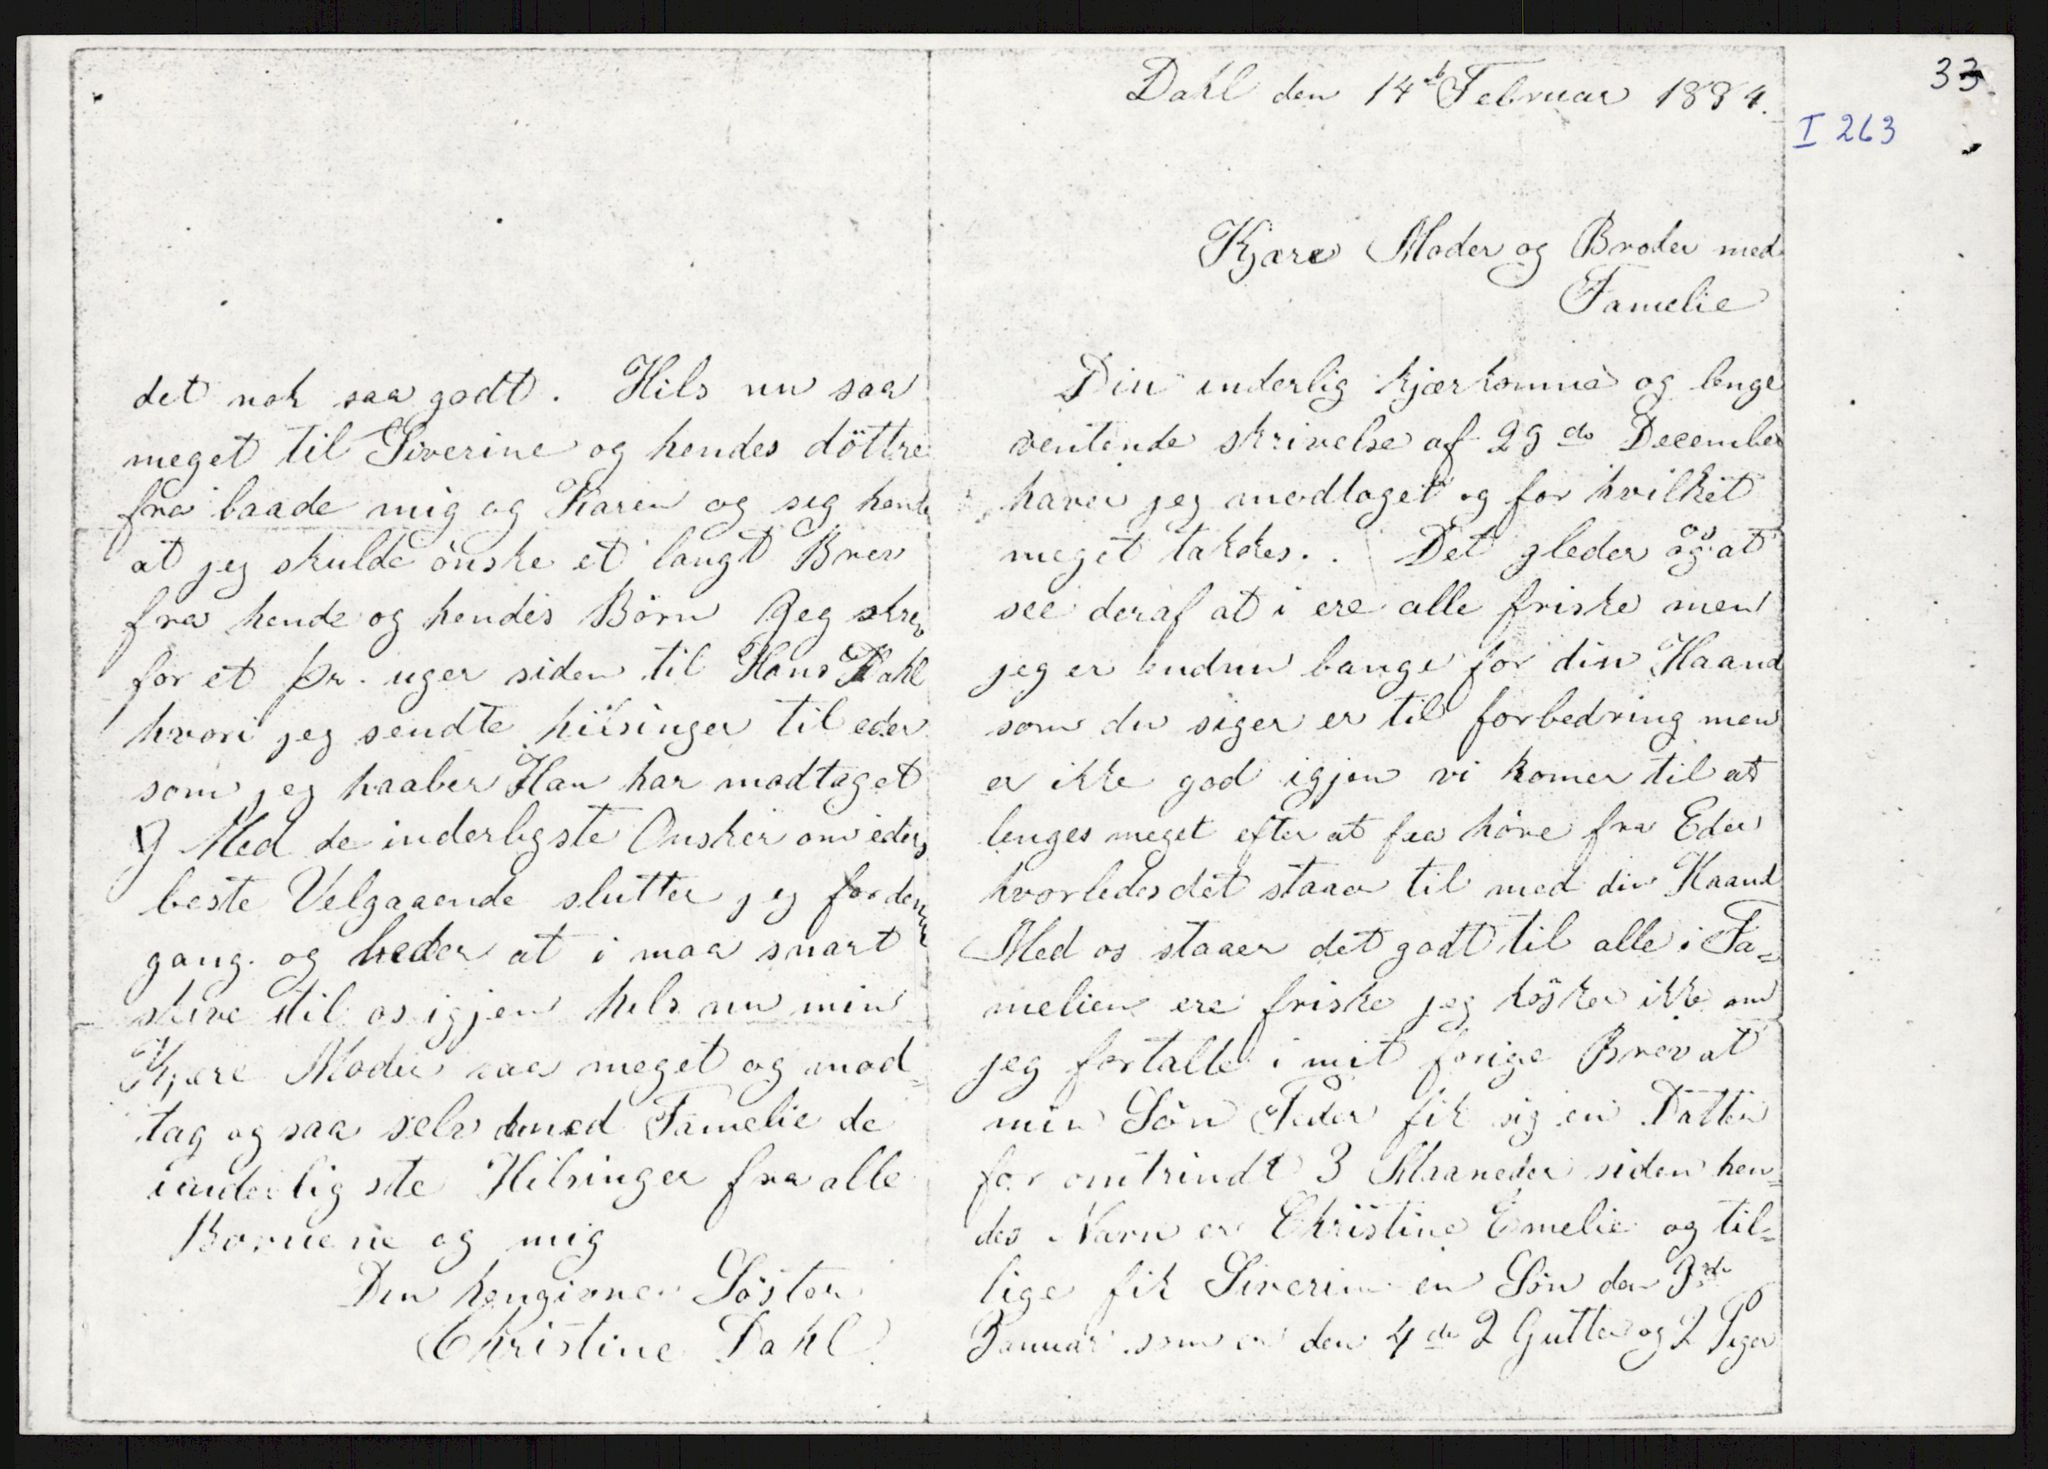 33.
I 263
Dahl den 14de Februar 1884.
Kjære Moder og Broder med
Famelie
Din inderlig kjærkomne og lenge
ventende skrivelse af 29de December
haver jeg modtaget og for hvilket
meget takkes. Det gleder os at
see deraf at i ere alle friske men
jeg er endnu bange for din Haand
som du siger er til forbedring men
er ikke god igjen vi komer til at
lenges meget efter at faa høre fra Eder
hvorledes det staaer til med din Haand
Med os staaer det godt til alle i Fa=
melien ere friske jeg hösker ikke om
jeg fortalte i mit forige Brev at
min Sön Peder fik sig en Datter
for omtrindt 3 Maaneder siden hen=
des Navn er Christine Emelie og til=
lige fik Siverine en Sön den 3de
Januar som er den 4de 2 Gutter og 2 Piger
det nok saa godt. Hils nu saa
meget til Siverine og hendes döttre
fra baade mig og Karen og sig hende
at jeg skulde önske et langt Brev
fra hende og hendes Börn Jeg skrev
for et Pr. uger siden til Hans Dahl
hvori jeg sendte hilsinger til eder
som jeg haaber Han har modtaget
Med de inderligste Onsker om eders
beste Velgaaende slutter jeg for denne
gang. og beder at i maa snart
skive til os igjen hils nu min
Kjære Moder saa meget og mod=
tag og saa selv med Famelie de
inderligste Hilsinger fra alle
Bornene og mig
Din hengivne Söster
Christine Dahl.